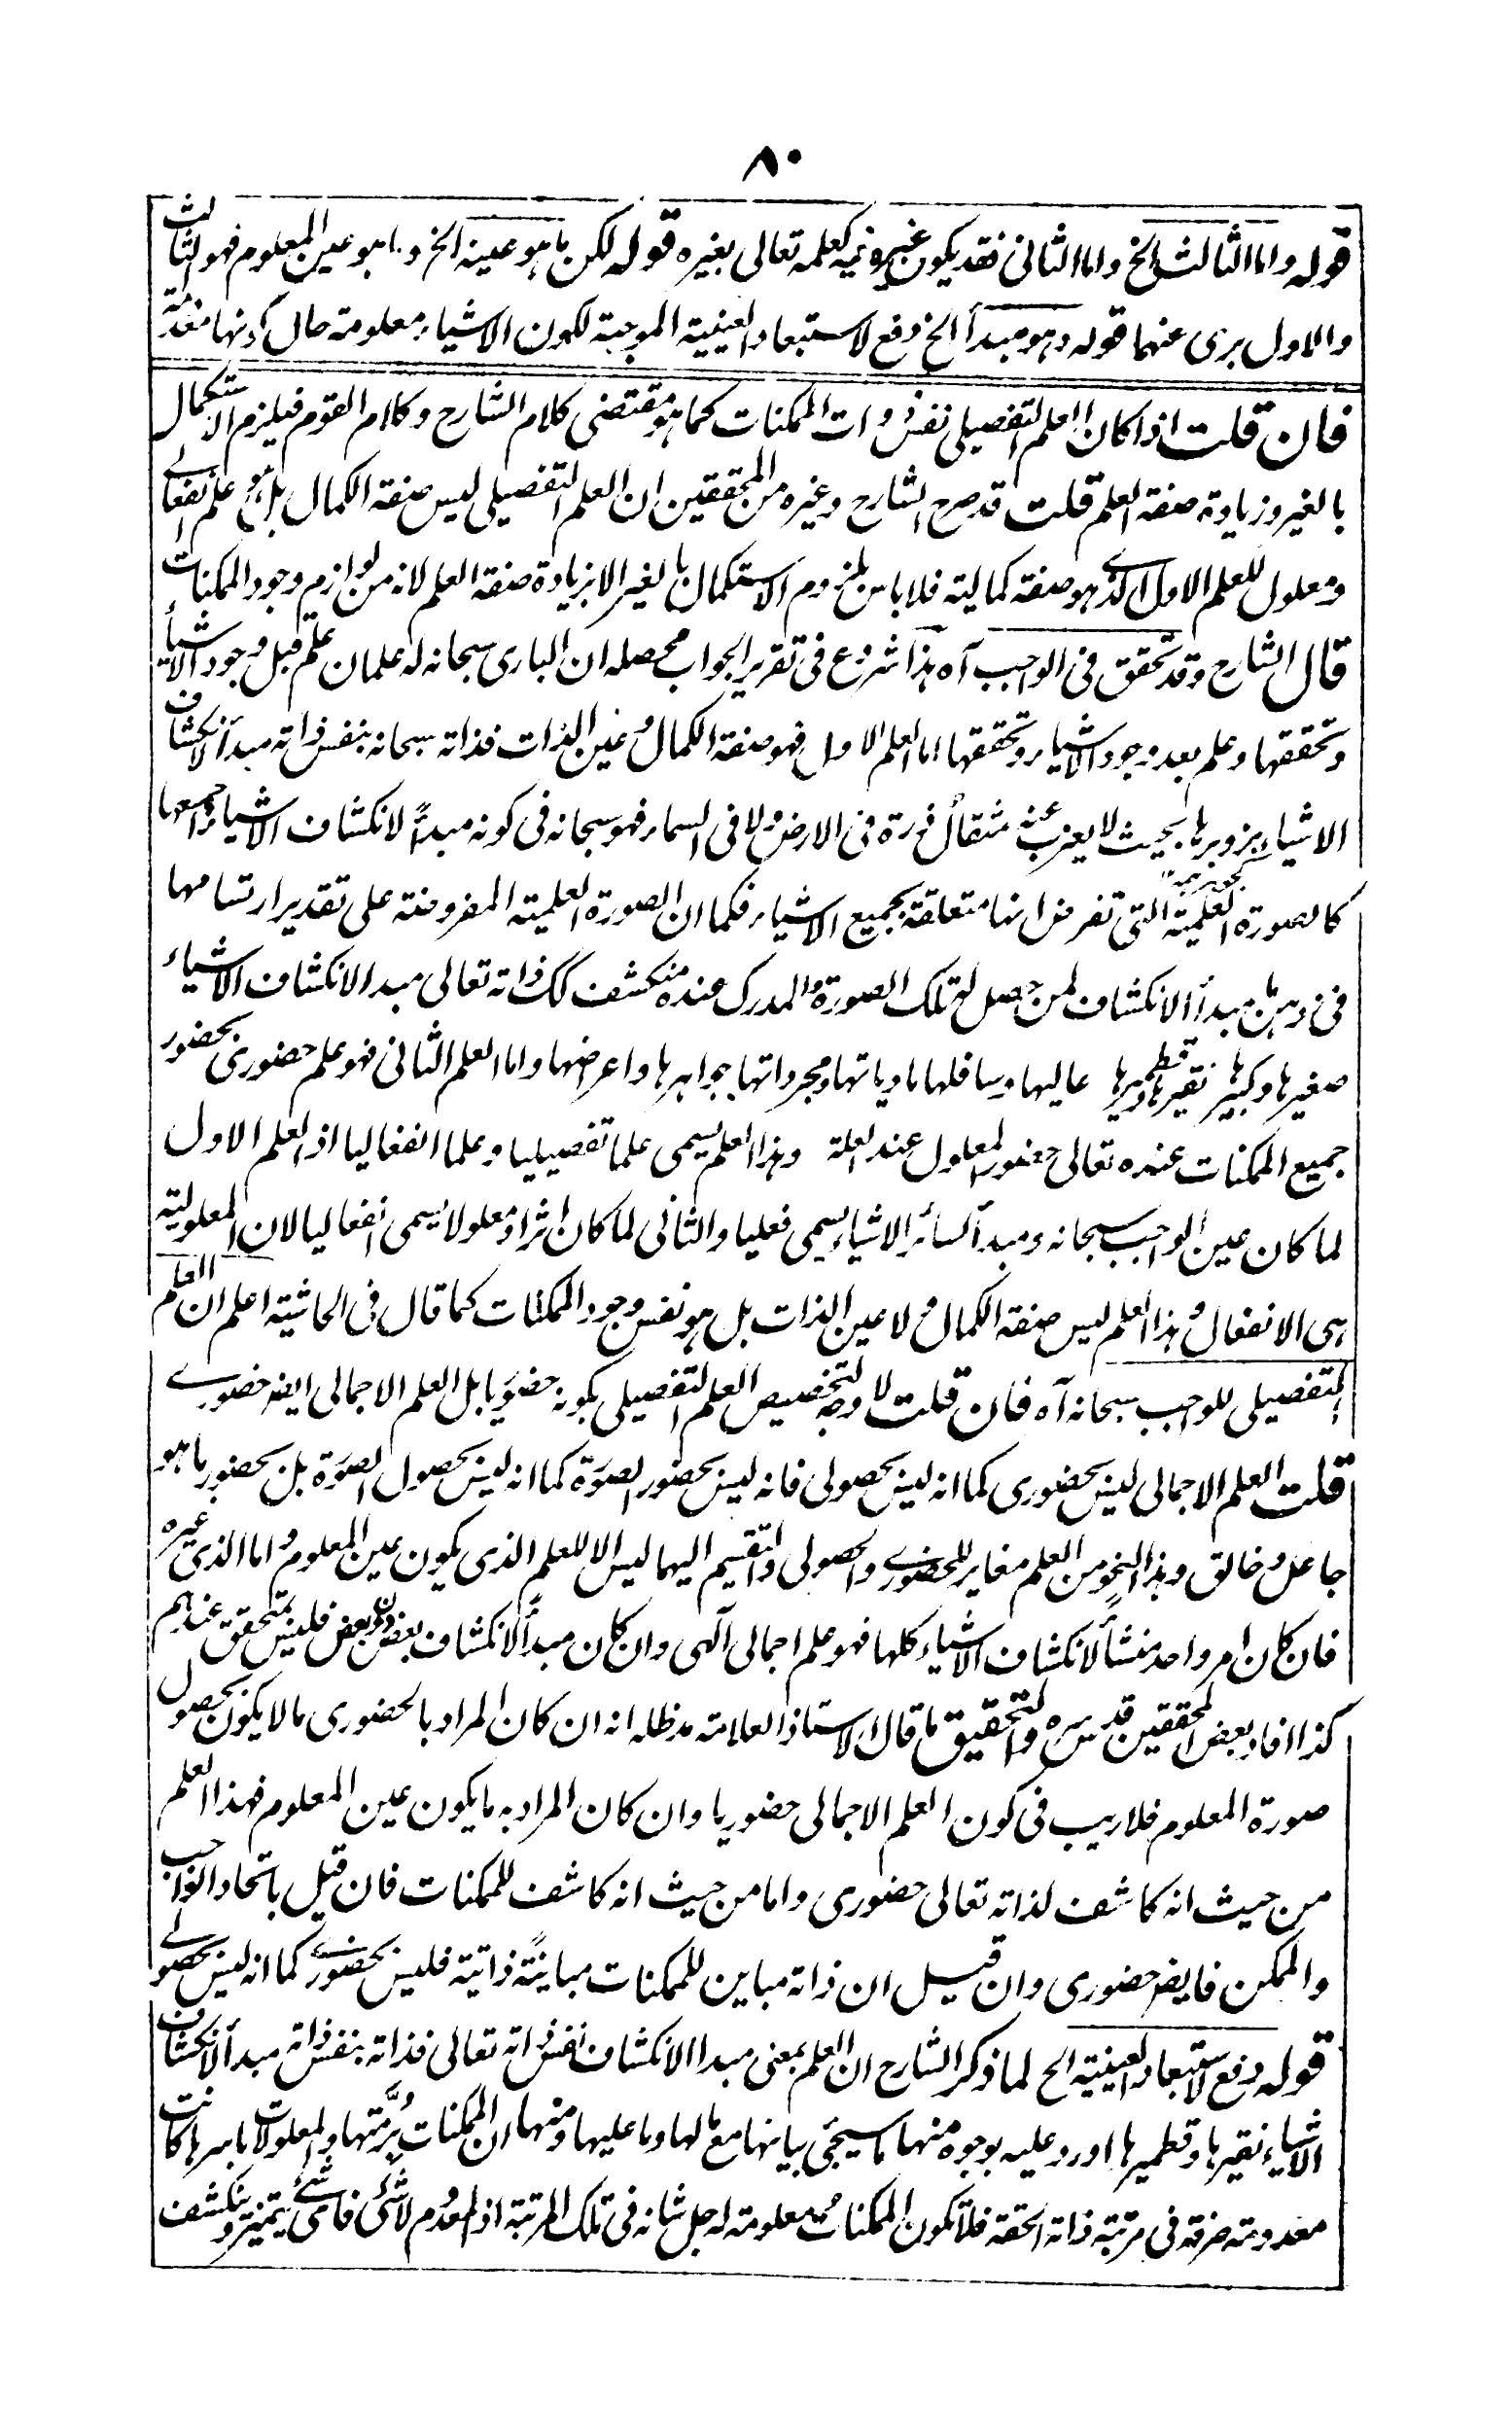 ٨٠
قوله واما الثالث الخ واما الثانی فقد یکون غیر وفیه کعلمه تعالی بغیره قوله لکن ما هو عینه الخ وما هو عین المعلوم فهو الثالث
والاول بری عنهما قوله وهو مبدأ الخ دفع لاستبعاد العینیة الموجبة لکون الاشیاء معلومة حال کونها معدومة
فان قلت اذا کان العلم التفصیلی نفس ذوات الممکنات کما هو مقتضی کلام الشارح وکلام القوم فیلزم الاستکمال
بالغیر وزیادة صفة العلم قلت قد صرح الشارح وغیره من المحققین ان العلم التفصیلی لیس صفة الکمال بل هو علم انفعالے
ومعلول للعلم الاول الذے هو صفة کمالیة فلا باس بلزوم الاستکمال بالغیر الا بزیادة صفة العلم لانه من لوازم وجود الممکنات
قال الشارح وقد تحقق فی الواجب آه هذا شروع فی تقریر الجواب محصله ان الباری سبحانه له علمان علم قبل وجود الاشیاء
وتحققها وعلم بعد وجود الاشیاء وتحققها اما العلم الاول فهو صفة الکمال وعین الذات فذاته سبحانه بنفس ذاته مبدأ لانکشاف
الاشیاء بزوبرها بحیث لا یعزب عنه مثقال ذرة فی الارض ولا فی السماء فهو سبحانه فی کونه مبدأً لانکشاف الاشیاء جمیعها
کالصورة العلمیة التی تفرض انها متعلقة بجمیع الاشیاء فکما ان الصورة العلمیة المفروضة علی تقدیر ارتسامها
فی ذهن ما مبدأ الانکشاف لمن حصل له تلک الصورة والمدرک عنده منکشف کک ذاته تعالی مبدا لانکشاف الاشیاء
صغیرها وکبیرها نقیرها وقطمیرها عالیها وسافلها مادیاتها ومجرداتها جواهرها واعراضها واما العلم الثانی فهو علم حضوری بحضور
جمیع الممکنات عنده تعالی حضور المعلول عند العلة وهذا العلم یسمی علما تفصیلیا وعلما انفعالیا اذ العلم الاول
لما کان عین الواجب سبحانه ومبدأ لسائر الاشیاء یسمی فعلیا والثانی لما کان اثرا ومعلولا یسمی انفعالیا لان المعلولیة
هی الانفعال وهذا العلم لیس صفة الکمال ولا عین الذات بل هو نفس وجود الممکنات کما قال فی الحاشیة اعلم ان العلم
التفصیلی للواجب سبحانه آه فان قلت لا وجه لتخصیص العلم التفصیلی بکونه حضوریا بل العلم الاجمالی ایضا حضورے
قلت العلم الاجمالی لیس بحضوری کما انه لیس بحصولی فانه لیس بحضور الصورة کما انه لیس بحصول الصورة بل بحضور ما هو
جاعل وخالق وهذا النحو من العلم مغایر للحضورے والحصولی والتقسیم الیهما لیس الا للعلم الذی یکون عین المعلوم واما الذی غیره
فان کان امر واحد منشأ لانکشاف الاشیاء کلها فهو علم اجمالی آلهی وان کان مبدأ لانکشاف بعض دون بعض فلیس بمتحقق عندهم
کذا افاد بعض المحققین قدس سره والتحقیق ما قال الاستاذ العلامة مدظله انه ان کان المراد بالحضوری ما لا یکون بحصول
صورة المعلوم فلا ریب فی کون العلم الاجمالی حضوریا وان کان المراد به ما یکون عین المعلوم فهذا العلم
من حیث انه کاشف لذاته تعالی حضوری واما من حیث انه کاشف للممکنات فان قیل باتحاد الواجب
والممکن فایضا حضوری وان قیل ان ذاته مباین للممکنات مباینة ذاتیة فلیس بحضورے کما انه لیس بحصولے
قوله دفع لاستبعاد العینیة الخ لما ذکر الشارح ان العلم بمعنی مبدا الانکشاف نفس ذاته تعالی فذاته بنفس ذاته مبدأ لانکشاف
الاشیاء نقیرها وقطمیرها اورد علیه بوجوه منها ما سیجئ بیانها مع مالها وما علیها ومنها ان الممکنات برمتها والمعلولات باسرها کانت
معدومة صرفة فی مرتبة ذاته الحقة فلا تکون الممکنات معلومة له جل شانه فی تلک المرتبة اذ المعدوم لا شئ فای شئ یتمیز وینکشف